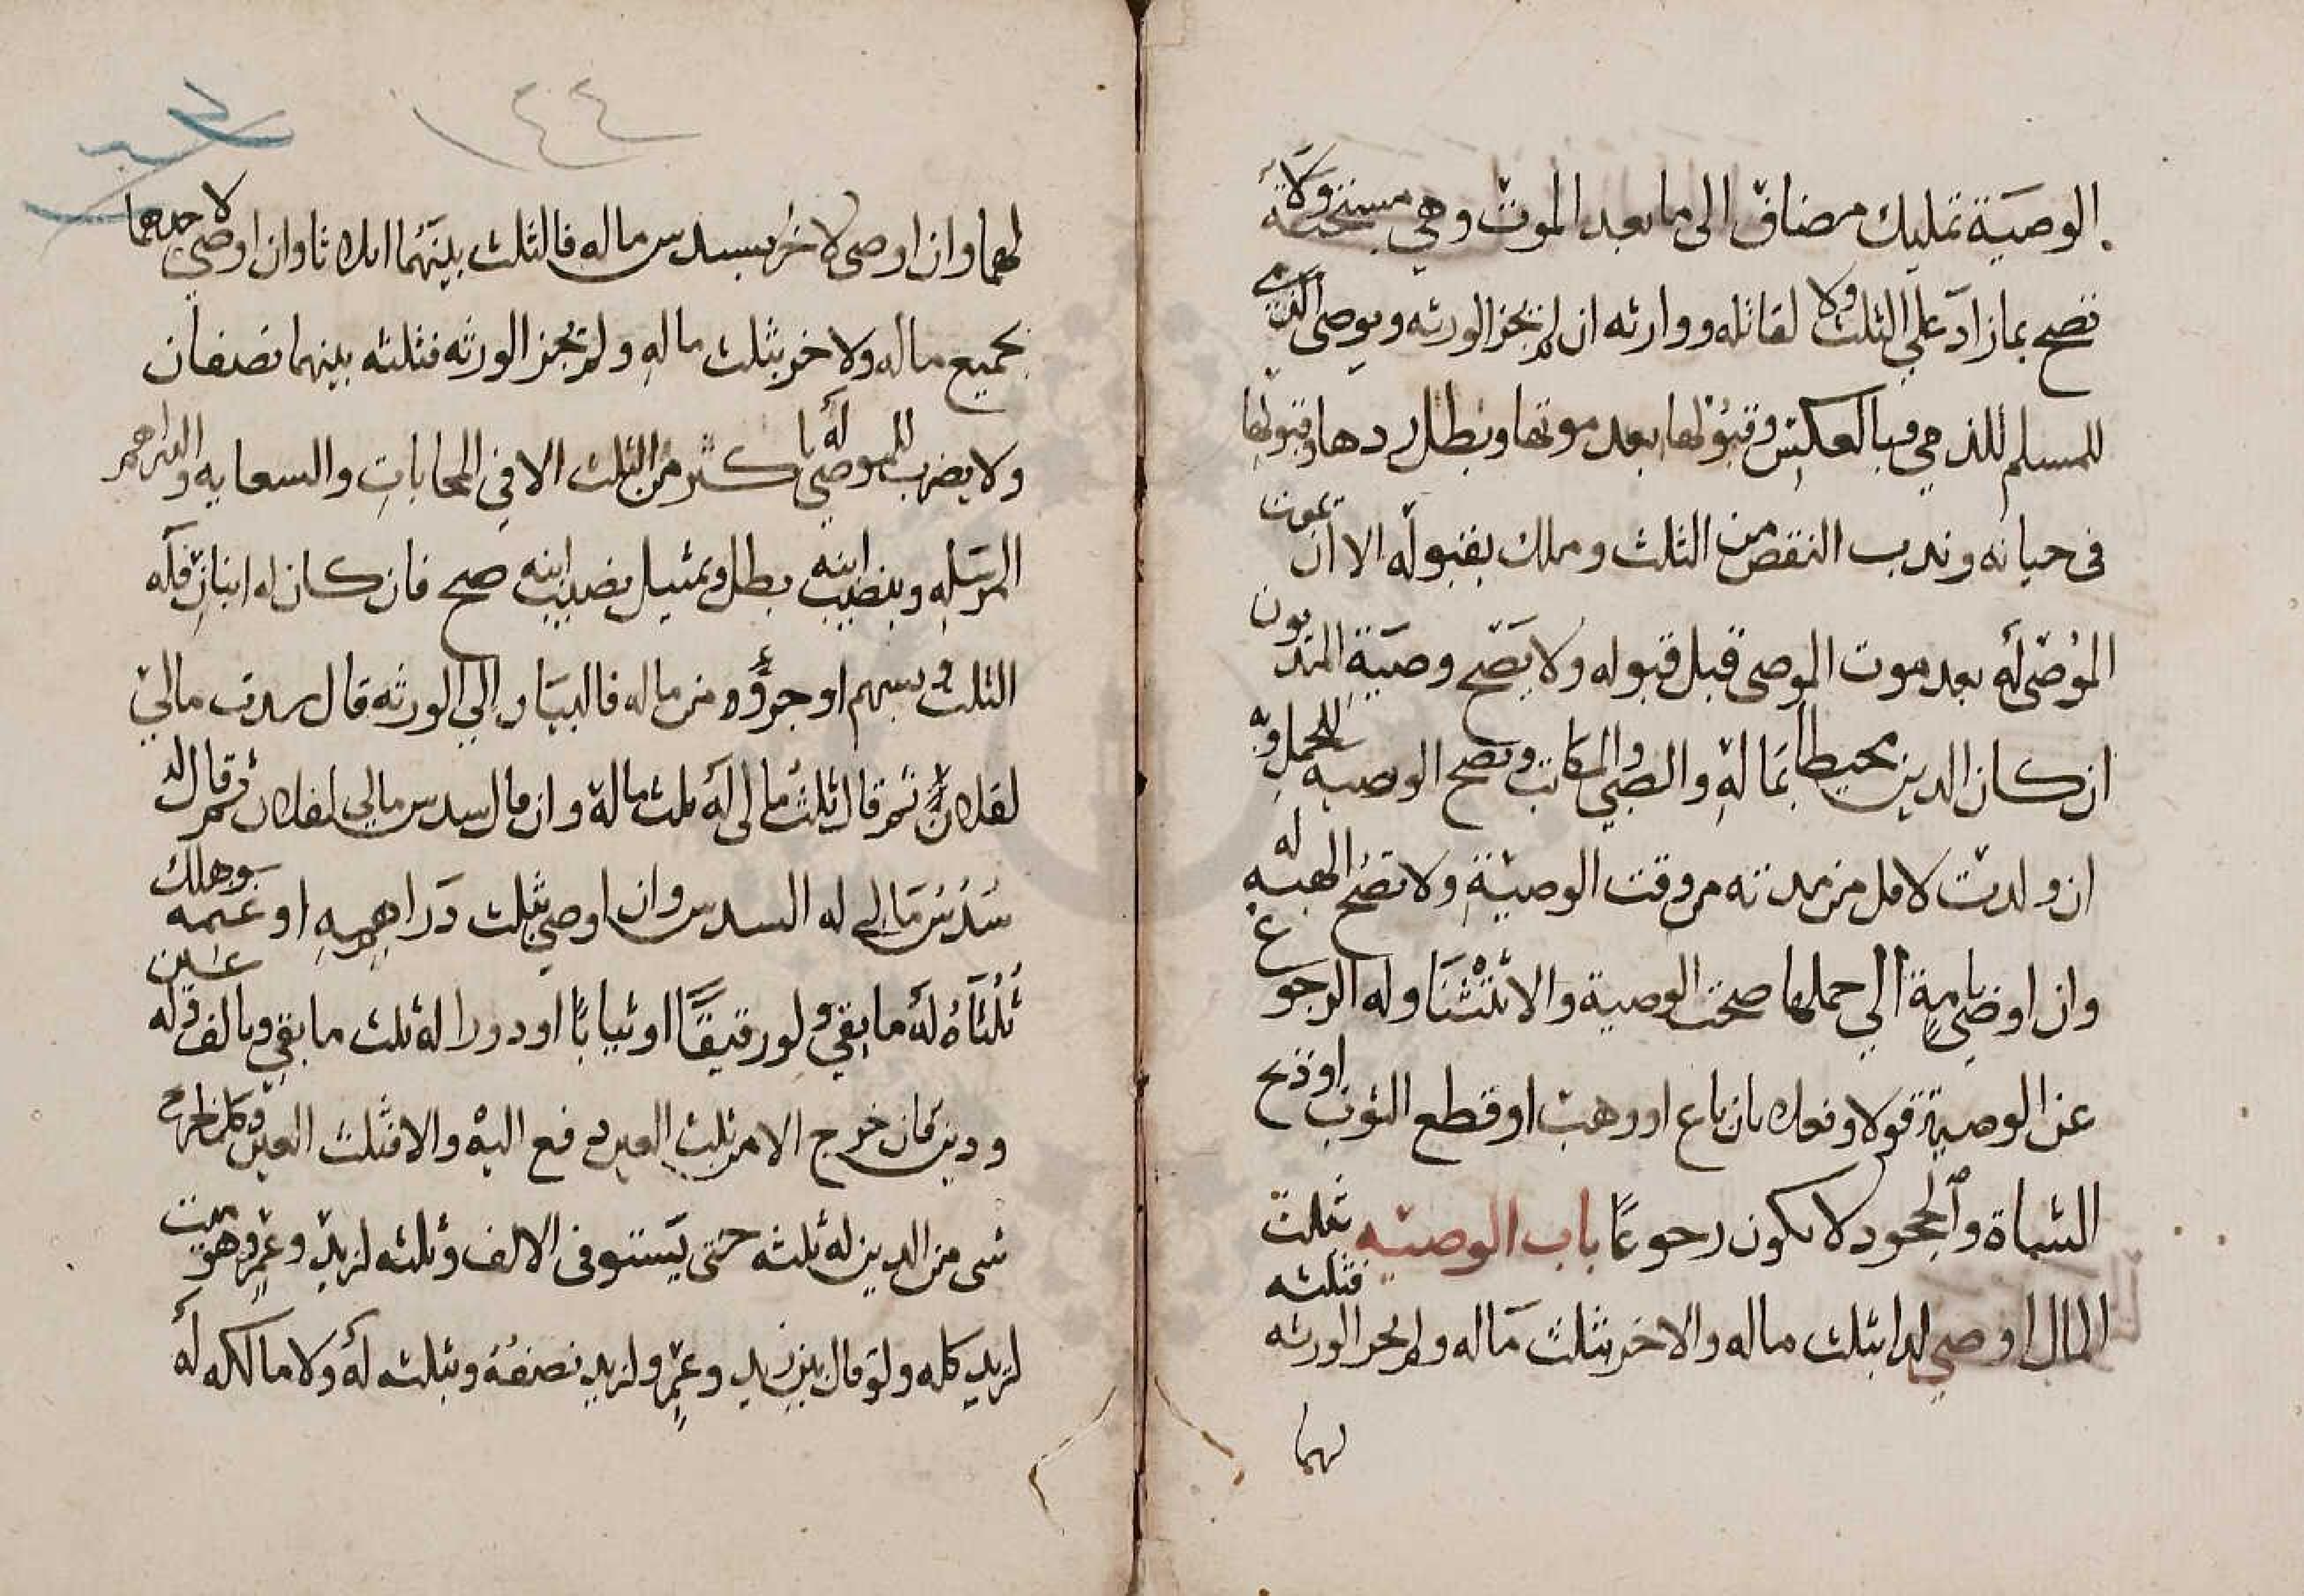 الوصية تمليك مضاف الى ما بعد الموت وهي مستحبة ولا
تصح بما زاد على الثلث ولا لقاتله ووارثه ان لم تجز الورثه ويوصى
للمسلم للذمي وبالعكس وقبولها بعد موتها وبطل ردها وقبولها
في حياته وندب النقص من الثلث وملك بقبوله الا ان يموت
الموصى له بعد موت الموصى قبل قبوله ولا يصح وصية المديون
ان كان الدين محيطا بماله والصبي والمكاتب وتصح الوصيه للحمل وبه
ان ولدت لاقل من مدته من وقت الوصية ولا تصح الهبه له
وان اوصى بامة الى حملها صحت الوصية والاستثنا وله الرجوع
عن الوصية قولا وفعلا بان باع او وهب او قطع الثوب او ذبح
الشاة والجحود لا يكون رجوعا باب الوصيه بثلث
المال اوصى لدا بثلث ماله والاخر بثلث ماله ولم تجز الورثه فثلثه
لهما
١٤٤
لهما وان اوصى لاخر بسدس ماله فالثلث بينهما اثلاثا وان اوصى لاحدهما
بجميع ماله ولاخر بثلث ماله ولم تجز الورثه فثلثه بينهما نصفان
ولا يضرب للموصى له باكثر من الثلث الا في المحابات والسعايه والدراهم
المرسله وبنصيب ابنه بطل وبمثل نصيب ابنه صح فان كان له ابنان فله
الثلث وبسهم او جزؤه من ماله فالبيان الى الورثه قال سدس مالي
لفلان ثم قال ثلث مالى له ثلث ماله وان قال سدس مالي لفلان ثم قال له
سدس مالي له السدس وان اوصى بثلث دراهمه او غنمه وهلك
ثلثاه له ما بقي ولو رقيقا او ثيابا او دورا له ثلث ما بقي وبالف وله عين
ودين فان خرج الالف من ثلث العين دفع اليه والا فثلث العين وكلما خرج
شى من الدين له ثلثه حتى يستوفى الالف وثلثه لزيد وعمرو وهو ميت
لزيد كله ولو قال بين زيد وعمرو لزيد نصفه وبثلثه له ولا مال له